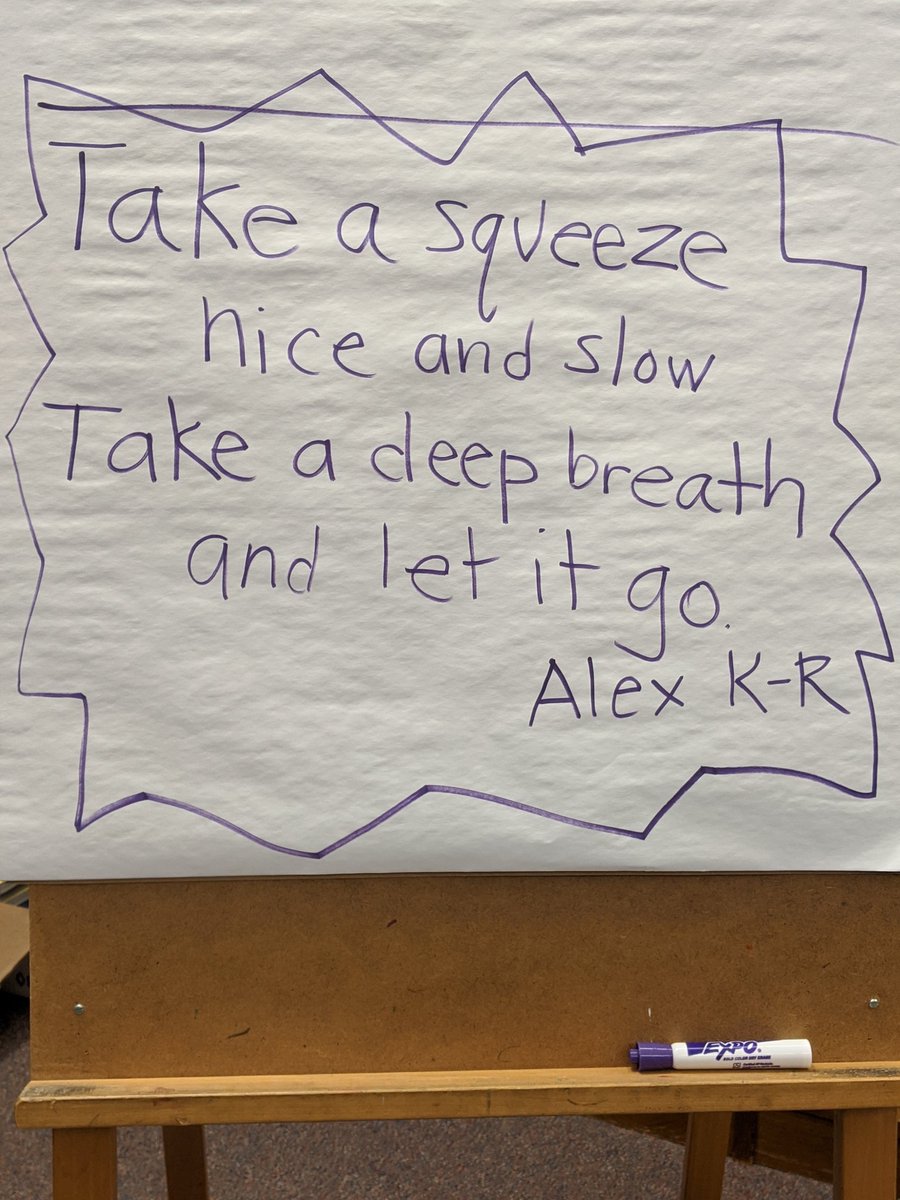 Take a squeeze
nice and slow
Take a deep breath
and let it go.
Alex K-R
EXPO
BOLD COLOR DRY ERASE